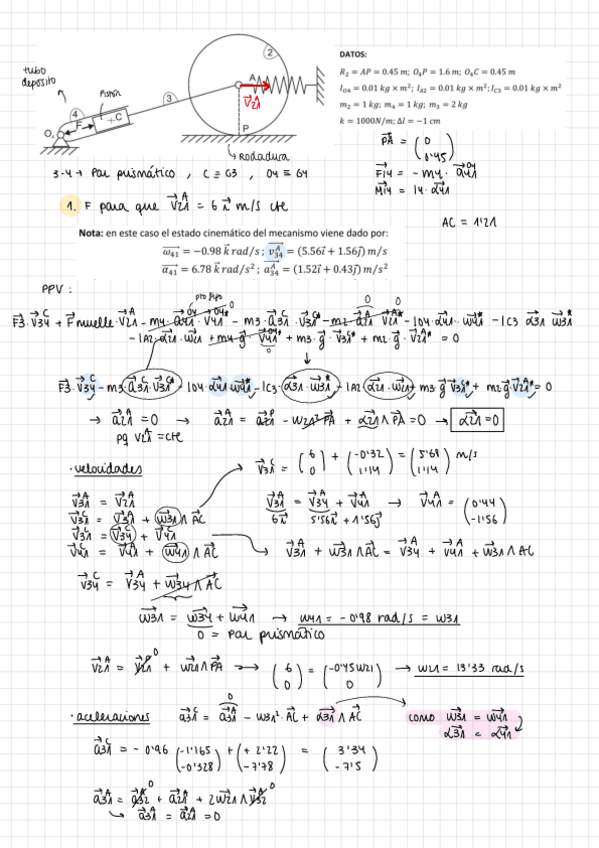 DATOS:
R₂ = AP = 0.45 m; O₄P = 1.6 m; O₄C = 0.45 m
I_O4 = 0.01 kg × m²; I_A2 = 0.01 kg × m²; I_C3 = 0.01 kg × m²
m₂ = 1 kg; m₄ = 1 kg; m₃ = 2 kg
k = 1000N/m; Δl = −1 cm
tubo
deposito
Pistón
2
A
V⃗21
3
4
F
+C
O₄
P
→ Rodadura
P⃗A = (0
0'45)
F⃗i4 = - m4 · a⃗41^04
M⃗i4 = I4 · α⃗41
3-4 → Par prismático , C ≡ G3 , O4 ≡ G4
1. F para que V⃗21^A = 6 i⃗ m/s cte
AC = 1'21
Nota: en este caso el estado cinemático del mecanismo viene dado por:
ω⃗41 = −0.98 k⃗ rad/s ; v⃗34^A = (5.56i⃗ + 1.56j⃗) m/s
α⃗41 = 6.78 k⃗ rad/s² ; a⃗34^A = (1.52i⃗ + 0.43j⃗) m/s²
PPV :
pto fijo
F⃗3 · V⃗34^C + F⃗muelle · V⃗21^A - m4 · a⃗41^04 · V⃗41^04* - m3 · a⃗31^C · V⃗31^C* - m2 · a⃗21^A V⃗21^A* - IO4 · α⃗41 · w⃗41* - IC3 α⃗31 w⃗31*
- IA2 · α⃗21 · w⃗21 + m4 · g⃗ · V⃗41^04* + m3 · g⃗ · V⃗31^C* + m2 · g⃗ · V⃗21^A* = 0
F⃗3 · V⃗34^C - m3 · a⃗31^C · V⃗31^C* - IO4 · α⃗41 w⃗41* - IC3 · α⃗31 · w⃗31* - IA2 · α⃗21 · w⃗21 + m3 g⃗ V⃗31^C* + m2 · g⃗ · V⃗21^A* = 0
→ a⃗21^A = 0 → a⃗21^A = a⃗21^P - w21² P⃗A + α⃗21 ∧ P⃗A = 0 → α⃗21 = 0
pq V⃗21^A = cte
· velocidades
V⃗31^C = (6 0) + (-0'32 1'14) = (5'68 1'14) m/s
V⃗31^A = V⃗21^A
V⃗31^C = V⃗31^A + w⃗31 ∧ A⃗C
V⃗31^C = V⃗34^C + V⃗41^C
V⃗41^C = V⃗41^A + w⃗41 ∧ A⃗C
V⃗31^A = V⃗34^A + V⃗41^A → V⃗41^A = (0'44 -1'56)
6i⃗ 5'56i⃗ + 1'56j⃗
V⃗31^A + w⃗31 ∧ A⃗C = V⃗34^A + V⃗41^A + w⃗31 ∧ A⃗C
V⃗34^C = V⃗34^A + w⃗34 ∧ A⃗C
w⃗31 = w⃗34 + w⃗41 → w41 = - 0'98 rad/s = w31
0 = Par prismático
V⃗21^A = V⃗21^P + w⃗21 ∧ P⃗A → (6 0) = (-0'45w21 0) → w21 = 13'33 rad/s
· aceleraciones a⃗31^C = a⃗31^A - w31² · A⃗C + α⃗31 ∧ A⃗C
como w⃗31 = w⃗41
α⃗31 = α⃗41
a⃗31^C = - 0'96 (-1'165 -0'328) + (+ 2'22 -7'78) = (3'34 -7'5)
a⃗31^A = a⃗32^A + a⃗21^A + 2w⃗21 ∧ V⃗32^A
→ a⃗31^A = a⃗21^A = 0